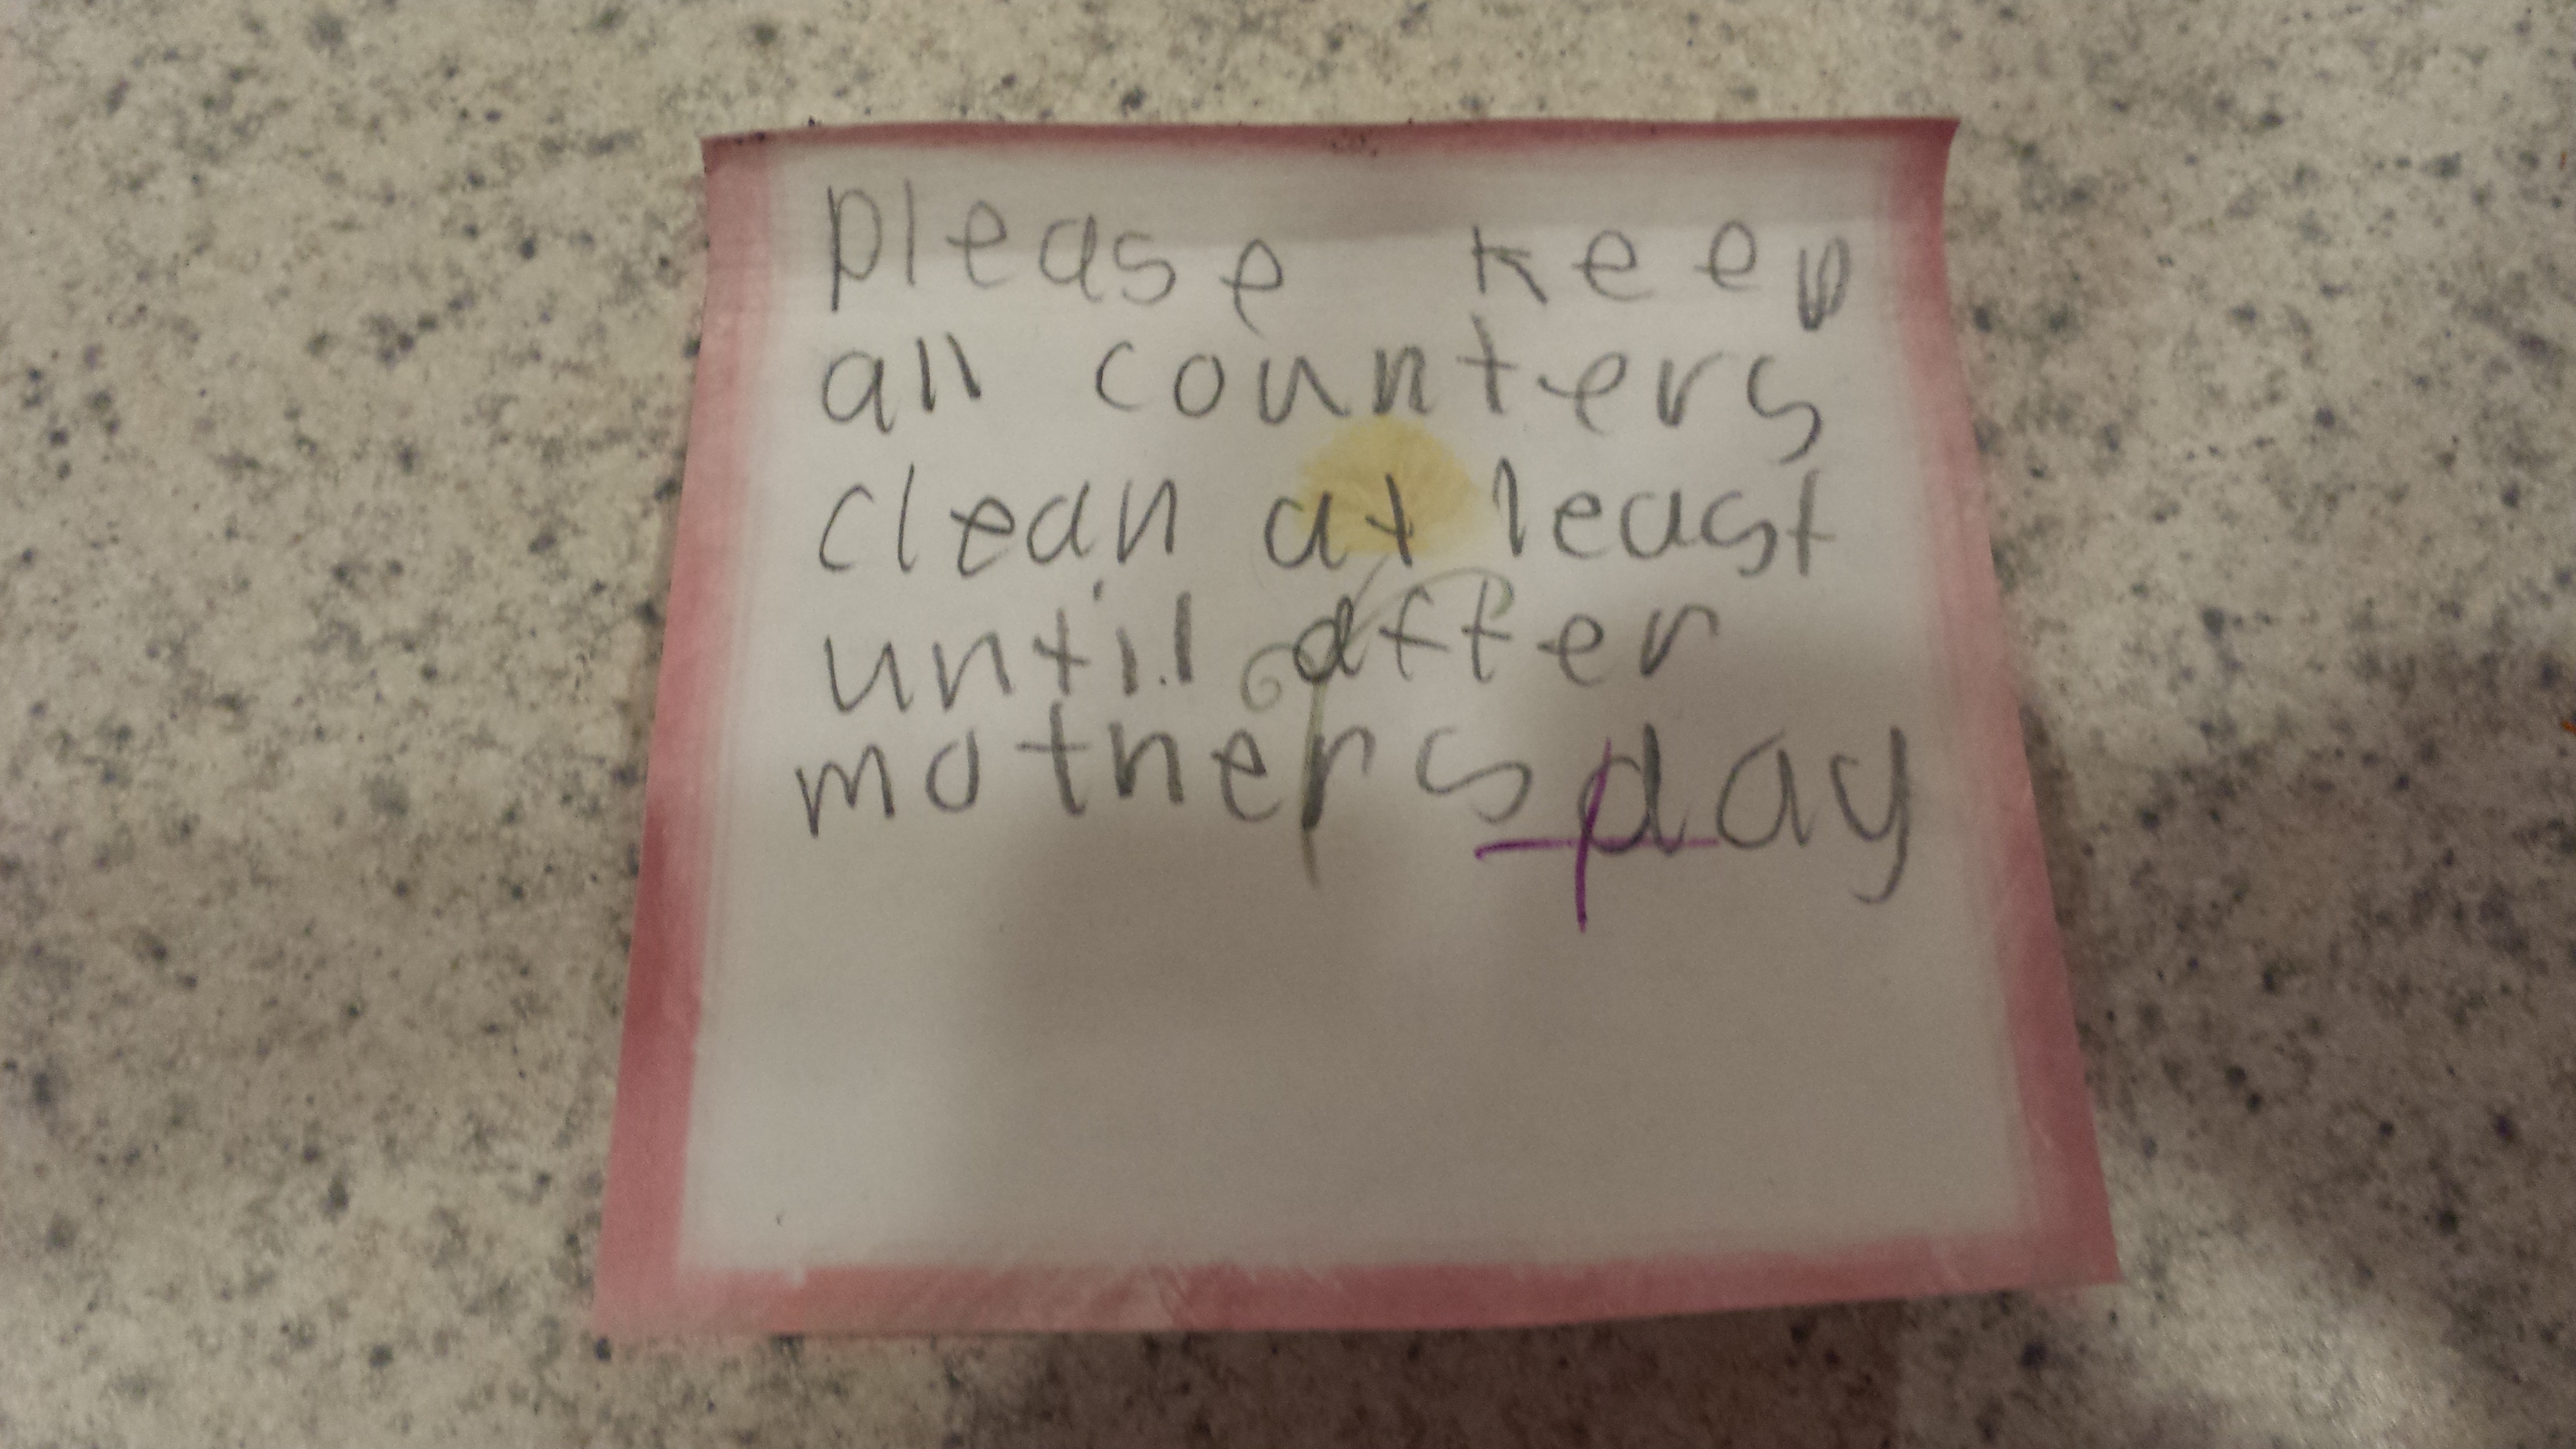 please keep
all counters
clean at least
until after
mothers day